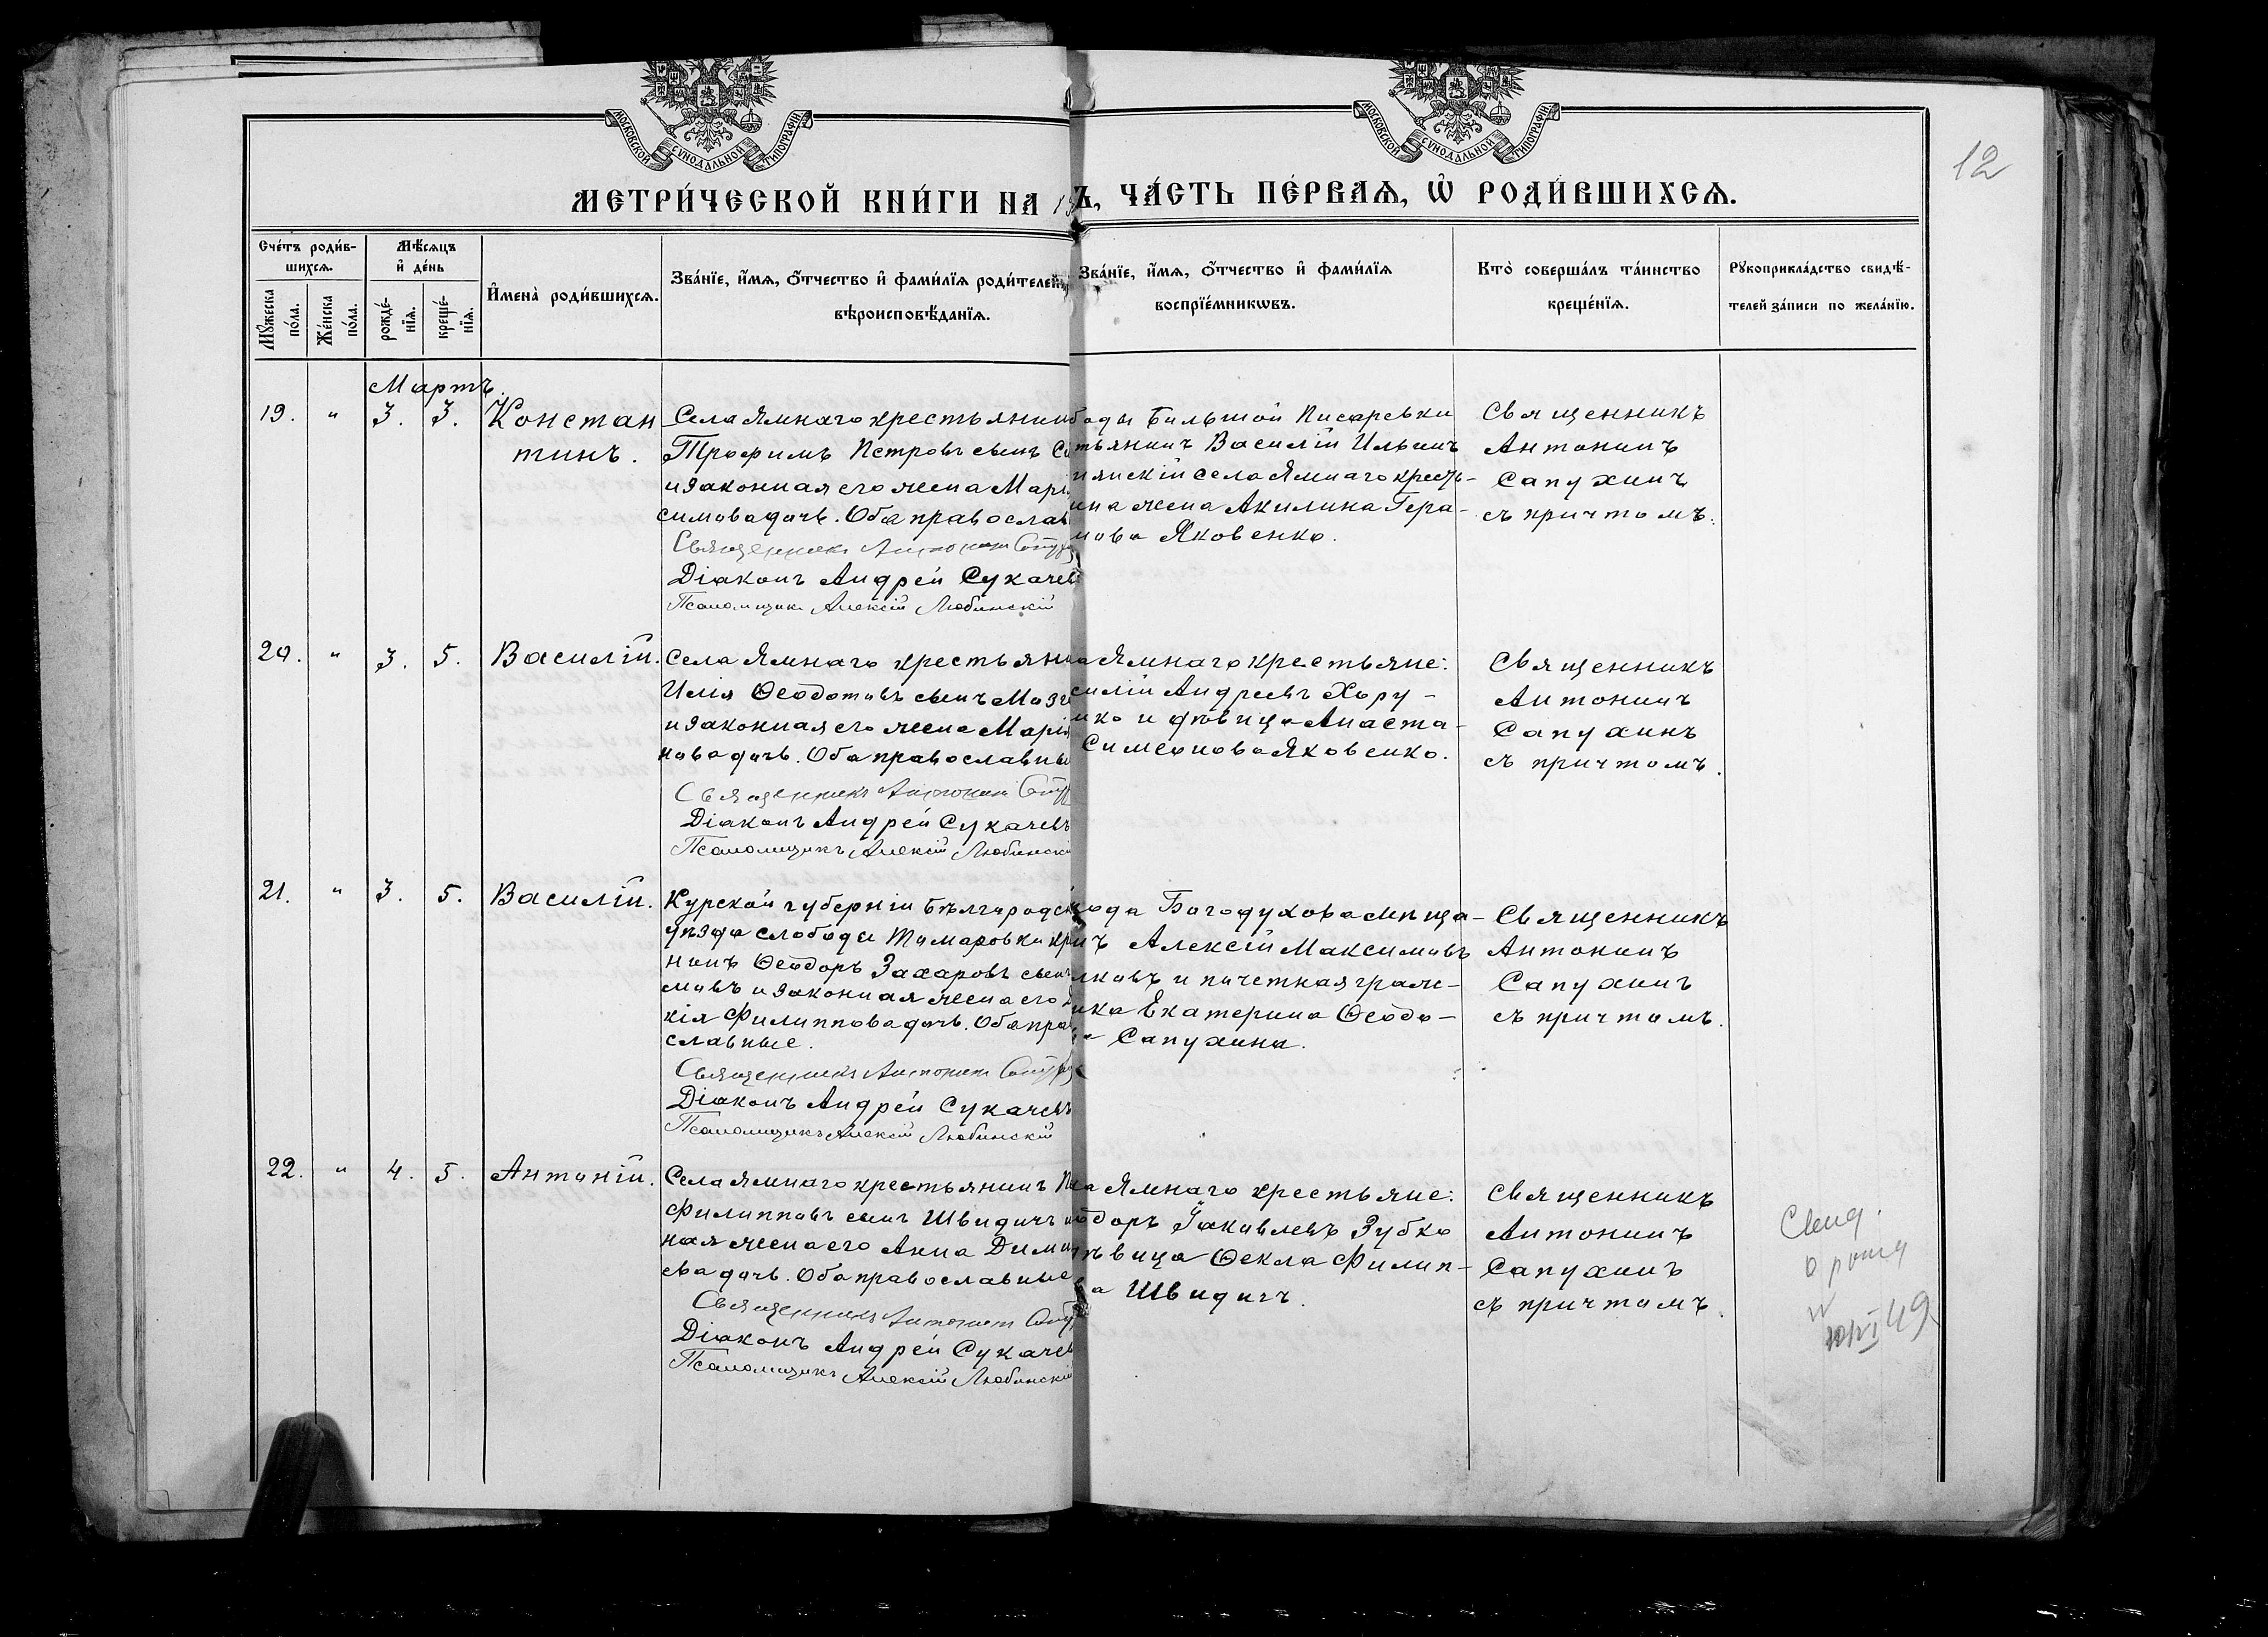 МОСКОВСКОЙ СУНОДАЛЬНОЙ ТИПОГРАФІИ
МОСКОВСКОЙ СУНОДАЛЬНОЙ ТИПОГРАФІИ
12
МЕТРИ́ЧЕСКОЙ КНИ́ГИ НА
Ъ, ЧА́СТЬ ПЕ́РВАѦ, Ѡ҆ РОДИ́ВШИХСѦ.
Сче́тъ роди́в-
шихсѧ.
Мѣ́сѧцъ
и҆ де́нь
И҆мена̀ роди́вшихсѧ.
Зва́нїе, и҆́мѧ, ѻ҆́тчество и҆ фами́лїѧ роди́телей,
вѣроисповѣ́данїѧ.
Мꙋ́жеска
по́ла.
Же́нска
по́ла.
рожде́-
нїѧ.
креще́-
нїѧ.
Зва́нїе, и҆́мѧ, ѻ҆́тчество и҆ фами́лїѧ
воспрїе́мникѡвъ.
Кто̀ соверша́лъ та́инство
креще́нїѧ.
Рꙋкоприкла́дство свидѣ́-
телей за́писи по жела́нїю.
Мартъ
19. " 3. 3. Констан
тинъ.
Села Ямнаго крестьянин
Трофимъ Петровъ сынъ
и законная его жена Марі
симова дочь. Оба православ
Священникъ Антонин Сапух
Діаконъ Андрей Сукачев
Псаломщикъ Алексій Любинскій
боды Большой Писаревки
тьянинъ Василій Ильинъ
села Ямнаго кресть-
ина жена Акилина Гера-
мова Яковенко.
Священникъ
Антонинъ
Сапухинъ
съ причтомъ.
20. " 3. 5. Василій.
Села Ямнаго крестьяни
Илія Ѳеодотовъ сынъ
и законная его жена Марія
нова дочь. Оба православны
Священникъ Антонин Сапу
Діаконъ Андрей Сукачевъ
Псаломщикъ Алексій Любинскі
а Ямнаго крестьяне:
силій Андреевъ Хору-
нко и дѣвица Анаста-
Симеонова Яковенко.
Священникъ
Антонинъ
Сапухинъ
съ причтомъ.
21. " 3. 5. Василій.
Курской губерніи Бѣлгородск
уѣзда слободы Томаровки кр
нинъ Ѳеодоръ Захаровъ сынъ
мовъ и законная жена его
кія Филиппова дочь. Оба пра
славные.
Священникъ Антонин Сапух
Діаконъ Андрей Сукачевъ
Псаломщикъ Алексій Любинскій
рода Богодухова мѣща-
нъ Алексій Максимовъ
лковъ и почетная граж-
нка Екатерина Ѳеодо-
а Сапухина.
Священникъ
Антонинъ
Сапухинъ
съ причтомъ.
22. " 4. 5. Антоній.
Села Ямнаго крестьянинъ
Филипповъ сынъ Швидичъ и
ная жена его Анна Дими
ева дочь. Оба православные
Священникъ Антонин Сапу
Діаконъ Андрей Сукачев
Псаломщикъ Алексій Любинскій
а Ямнаго крестьяне:
доръ Іаковлевъ Зубко
ѣвица Ѳекла Филип-
ва Швидичъ.
Священникъ
Антонинъ
Сапухинъ
съ причтомъ.
49